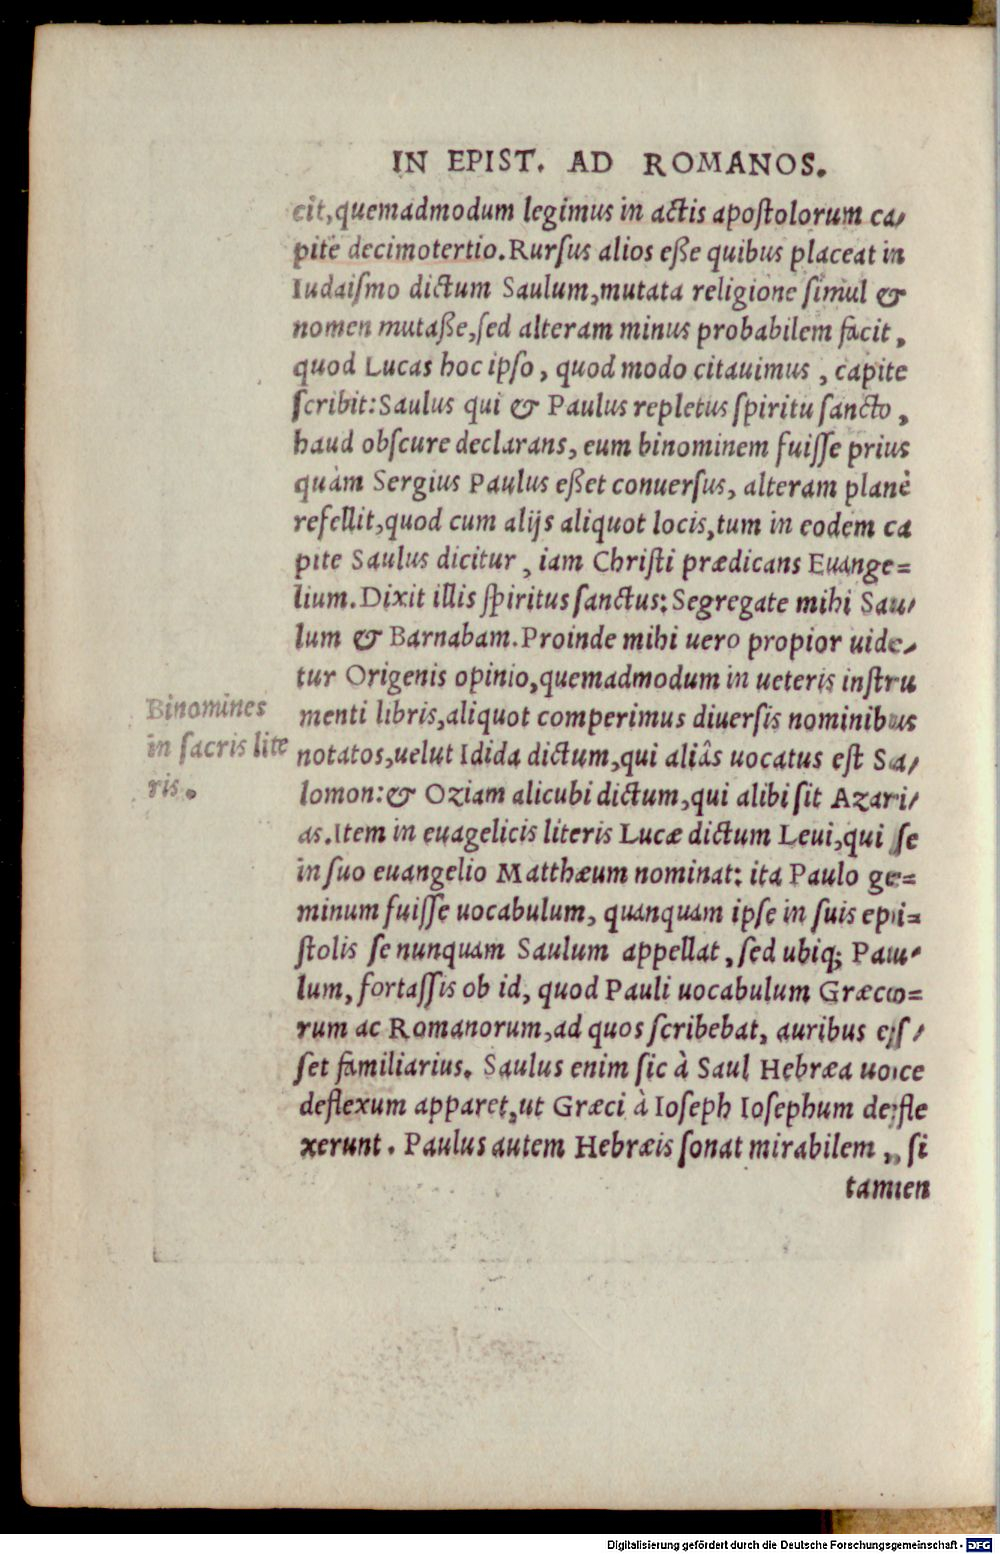 IN EPIST. AD ROMANOS.
cit,quemadmodum legimus in actis apoſtolorum ca/
pite decimotertio.Rurſus alios eße quibus placeat in
Iudaiſmo dictum Saulum,mutata religione ſimul &
nomen mutaße,ſed alteram minus probabilem facit,
quod Lucas hoc ipſo, quod modo citauimus, capite
ſcribit:Saulus qui & Paulus repletus ſpiritu ſancto,
haud obſcure declarans, eum binominem fuiſſe prius
quàm Sergius Paulus eßet conuerſus, alteram planè
refellit,quod cum alijs aliquot locis,tum in eodem ca
pite Saulus dicitur, iam Chriſti prædicans Euange=
lium.Dixit illis ſpiritus ſanctus: Segregate mihi Sau/
lum & Barnabam.Proinde mihi uero propior uide/
tur Origenis opinio,quemadmodum in ueteris inſtru
Binomines
in ſacris lite
ris.
menti libris,aliquot comperimus diuerſis nominibus
notatos,uelut Idida dictum,qui aliâs uocatus eſt Sa/
lomon:& Oziam alicubi dictum,qui alibi ſit Azari/
as.Item in euagelicis literis Lucæ dictum Leui,qui ſe
in ſuo euangelio Matthæum nominat: ita Paulo ge=
minum fuiſſe uocabulum, quanquam ipſe in ſuis epi=
ſtolis ſe nunquam Saulum appellat, ſed ubiq; Pau/
lum, fortaſſis ob id, quod Pauli uocabulum Græco=
rum ac Romanorum,ad quos ſcribebat, auribus eſ/
ſet familiarius. Saulus enim ſic à Saul Hebræa uoce
deflexum apparet,ut Græci à Ioſeph Ioſephum defle
xerunt. Paulus autem Hebræis ſonat mirabilem, ſi
tamen
Digitalisierung gefördert durch die Deutsche Forschungsgemeinschaft - DFG